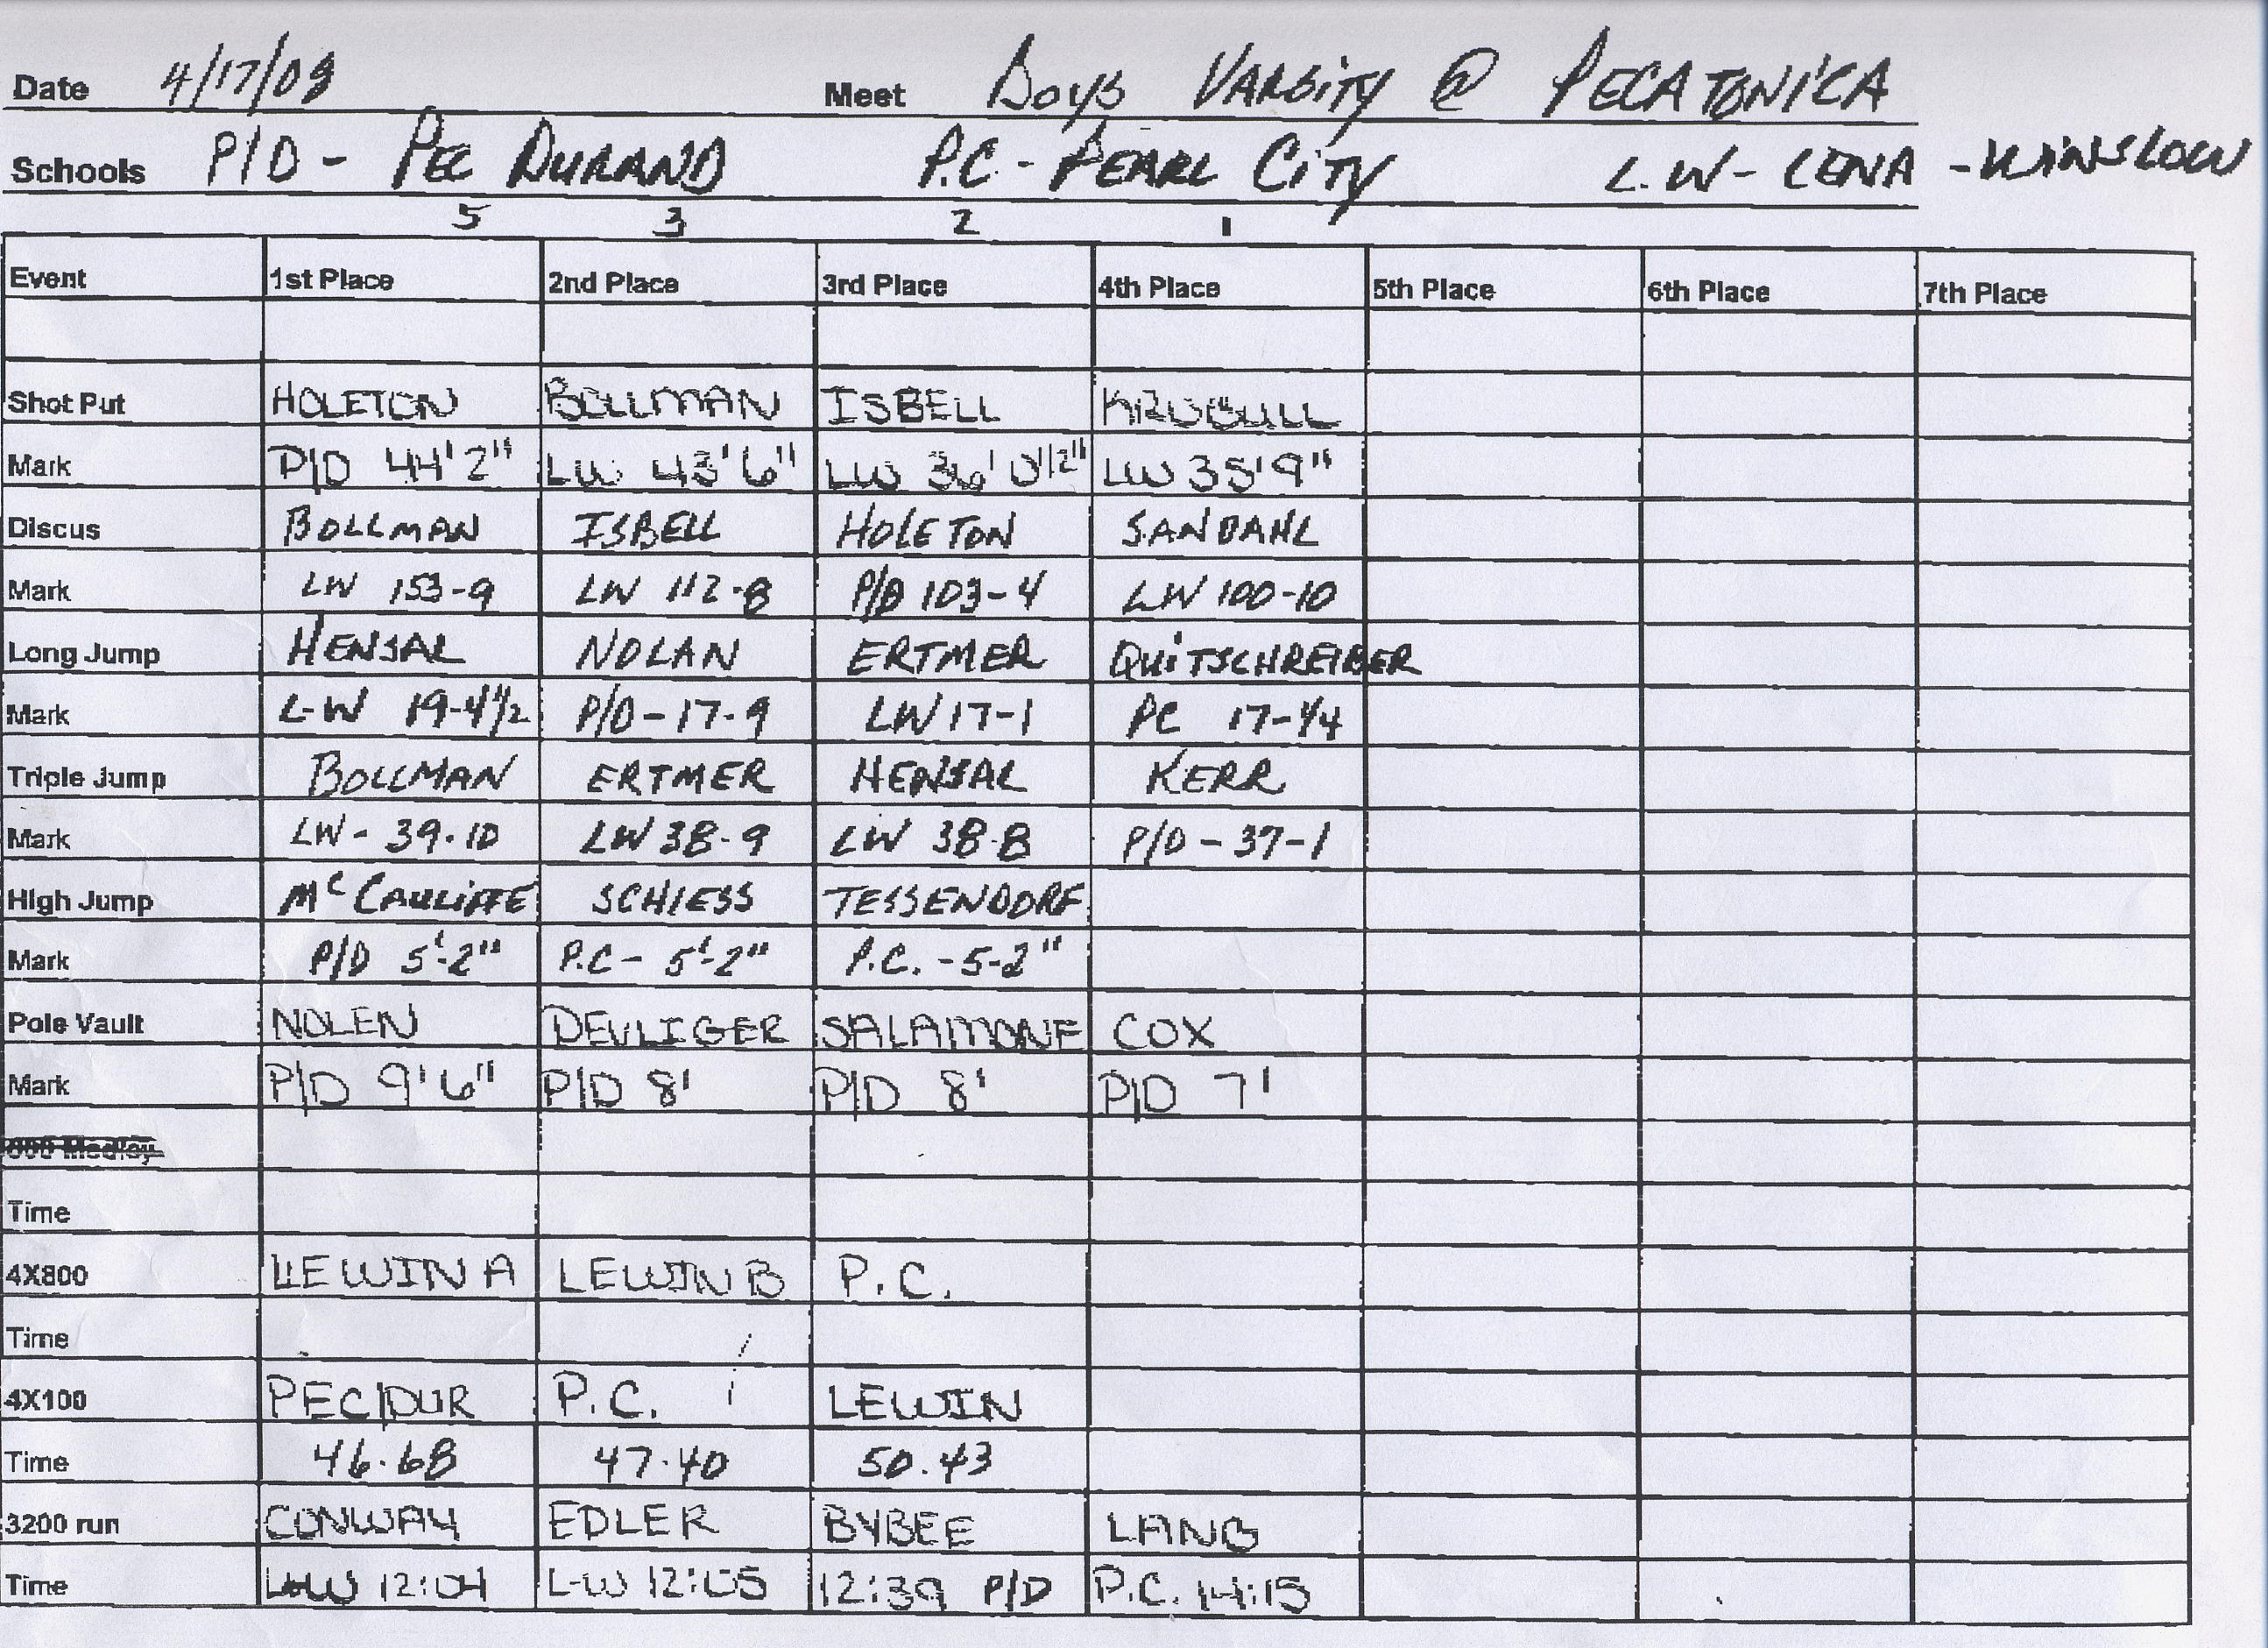 Date 4/17/08 Meet Boys VARSITY @ PECATONICA
Schools P/D - PEC DURAND P.C - PEARL CITY L.W- LENA - WINSLOW
5 3 2 1
Event 1st Place 2nd Place 3rd Place 4th Place 5th Place 6th Place 7th Place
Shot Put HOLETON BOLLMAN ISBELL
Mark P/D 44'2" LW 43'6" LW 36' 0 1/2" LW 35'9"
Discus BOLLMAN ISBELL HOLETON SANDAHL
Mark LW 153-9 LW 112-8 P/D 103-4 LW 100-10
Long Jump HENSAL NOLAN ERTMER QUITSCHREIBER
Mark L-W 19-4 1/2 P/D-17-9 LW 17-1 PC 17-1/4
Triple Jump BOLLMAN ERTMER HENSAL KERR
Mark LW- 39-10 LW 38-9 LW 38-8 P/D-37-1
High Jump McCAULIFFE SCHIESS TESSENDORF
Mark P/D 5'-2" P.C- 5'-2" P.C. -5-2"
Pole Vault NOLEN DEVLIGER SALAMONE COX
Mark P/D 9'6" P/D 8' P/D 8' P/D 7'
800 Medley
Time
4X800 LEWIN A LEWIN B P.C.
Time
4X100 PEC/DUR P.C. LEWIN
Time 46.68 47.40 50.43
3200 run CONWAY EDLER BYBEE LANG
Time L-W 12:04 L-W 12:05 12:39 P/D P.C. 14:15